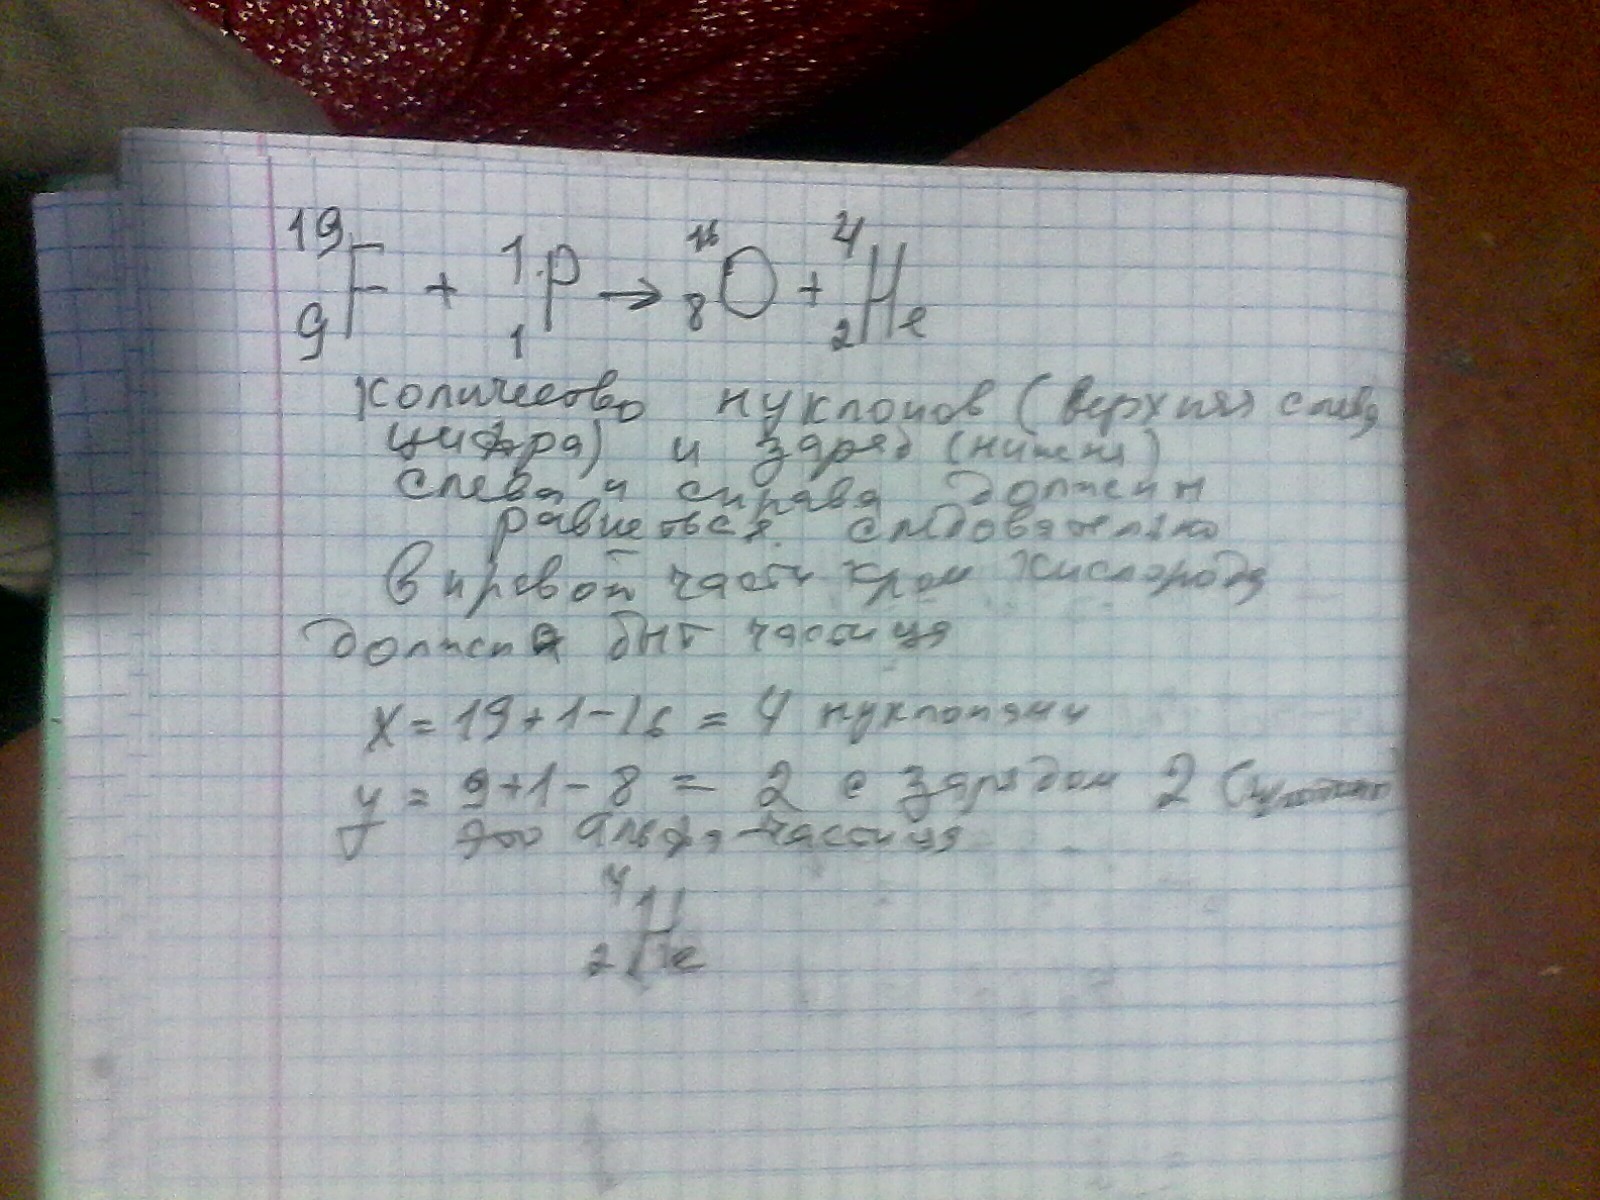 19 9 F + 1 1 P → 16 8 O + 4 2 He
Количество нуклонов (верхняя слева
цифра) и заряд (нижняя)
слева и справа должен
равняться. следовательно
в правой части кром кислорода
должна быт частица
x = 19 + 1 - 16 = 4 нуклонами
y = 9 + 1 - 8 = 2 с зарядом 2
это альфа-частица
4 2 He